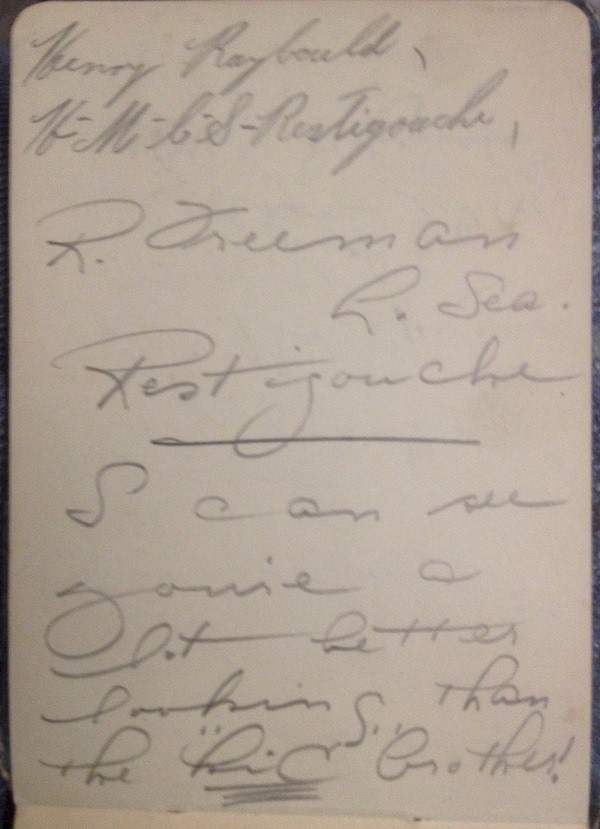 Henry Raybould,
H-M-C-S-Restigouche,
R. Freeman
L. Sea.
Restigouche.
I can see
you're a
lot better
looking than
the "big" brother!